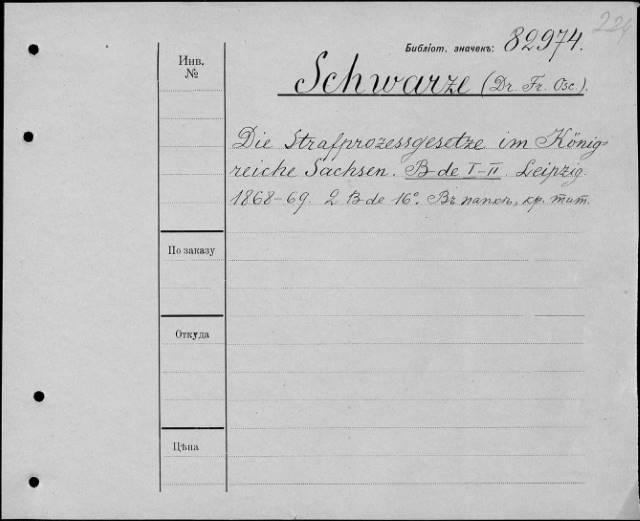 224
Библіот. значекъ: 82974.
Инв.
№
Schwarze (Dr. Fr. Osc.).
Die Strafprozessgesetze im König-
reiche Sachsen. Bde I-II. Leipzig.
1868-69. 2 Bde 16°. Въ папкѣ, кр. тит.
По заказу
Откуда
Цѣна